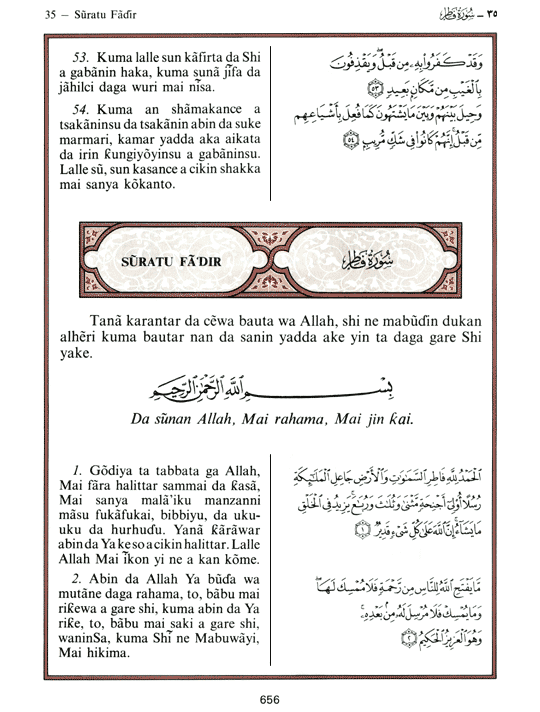 35 — Sũratu Fãɗir
٣٥ - سُورَةُ فَاطِر
53. Kuma lalle sun kãfirta da Shi
a gabãnin haka, kuma sunã jĩfa da
jãhilci daga wuri mai nĩsa.
54. Kuma an shãmakance a
tsakãninsu da tsakãnin abin da suke
marmari, kamar yadda aka aikata
da irin ƙungiyõyinsu a gabãninsu.
Lalle sũ, sun kasance a cikin shakka
mai sanya kõkanto.
وَقَدْ كَفَرُوا۟ بِهِۦ مِن قَبْلُ ۖ وَيَقْذِفُونَ
بِٱلْغَيْبِ مِن مَّكَانٍۭ بَعِيدٍ ٥٣
وَحِيلَ بَيْنَهُمْ وَبَيْنَ مَا يَشْتَهُونَ كَمَا فُعِلَ بِأَشْيَاعِهِم
مِّن قَبْلُ ۚ إِنَّهُمْ كَانُوا۟ فِى شَكٍّ مُّرِيبٍۭ ٥٤
SŨRATU FÃƊIR
سُورَةُ فَاطِر
Tanã karantar da cẽwa bauta wa Allah, shi ne mabũɗin dukan
alhẽri kuma bautar nan da sanin yadda ake yin ta daga gare Shi
yake.
بِسْمِ ٱللَّهِ ٱلرَّحْمَٰنِ ٱلرَّحِيمِ
Da sũnan Allah, Mai rahama, Mai jin ƙai.
1. Gõdiya ta tabbata ga Allah,
Mai fãra halittar sammai da ƙasã,
Mai sanya malã'iku manzanni
mãsu fukãfukai, bibbiyu, da uku-
uku da hurhuɗu. Yanã ƙãrãwar
abin da Ya ke so a cikin halittar. Lalle
Allah Mai ĩkon yi ne a kan kõme.
2. Abin da Allah Ya bũɗa wa
mutãne daga rahama, to, bãbu mai
riƙewa a gare shi, kuma abin da Ya
riƙe, to, bãbu mai saki a gare shi,
waninSa, kuma Shĩ ne Mabuwãyi,
Mai hikima.
ٱلْحَمْدُ لِلَّهِ فَاطِرِ ٱلسَّمَٰوَٰتِ وَٱلْأَرْضِ جَاعِلِ ٱلْمَلَٰٓئِكَةِ
رُسُلًا أُو۟لِىٓ أَجْنِحَةٍ مَّثْنَىٰ وَثُلَٰثَ وَرُبَٰعَ ۚ يَزِيدُ فِى ٱلْخَلْقِ
مَا يَشَآءُ ۚ إِنَّ ٱللَّهَ عَلَىٰ كُلِّ شَىْءٍ قَدِيرٌ ١
مَّا يَفْتَحِ ٱللَّهُ لِلنَّاسِ مِن رَّحْمَةٍ فَلَا مُمْسِكَ لَهَا ۖ
وَمَا يُمْسِكْ فَلَا مُرْسِلَ لَهُۥ مِنۢ بَعْدِهِۦ ۚ
وَهُوَ ٱلْعَزِيزُ ٱلْحَكِيمُ ٢
656